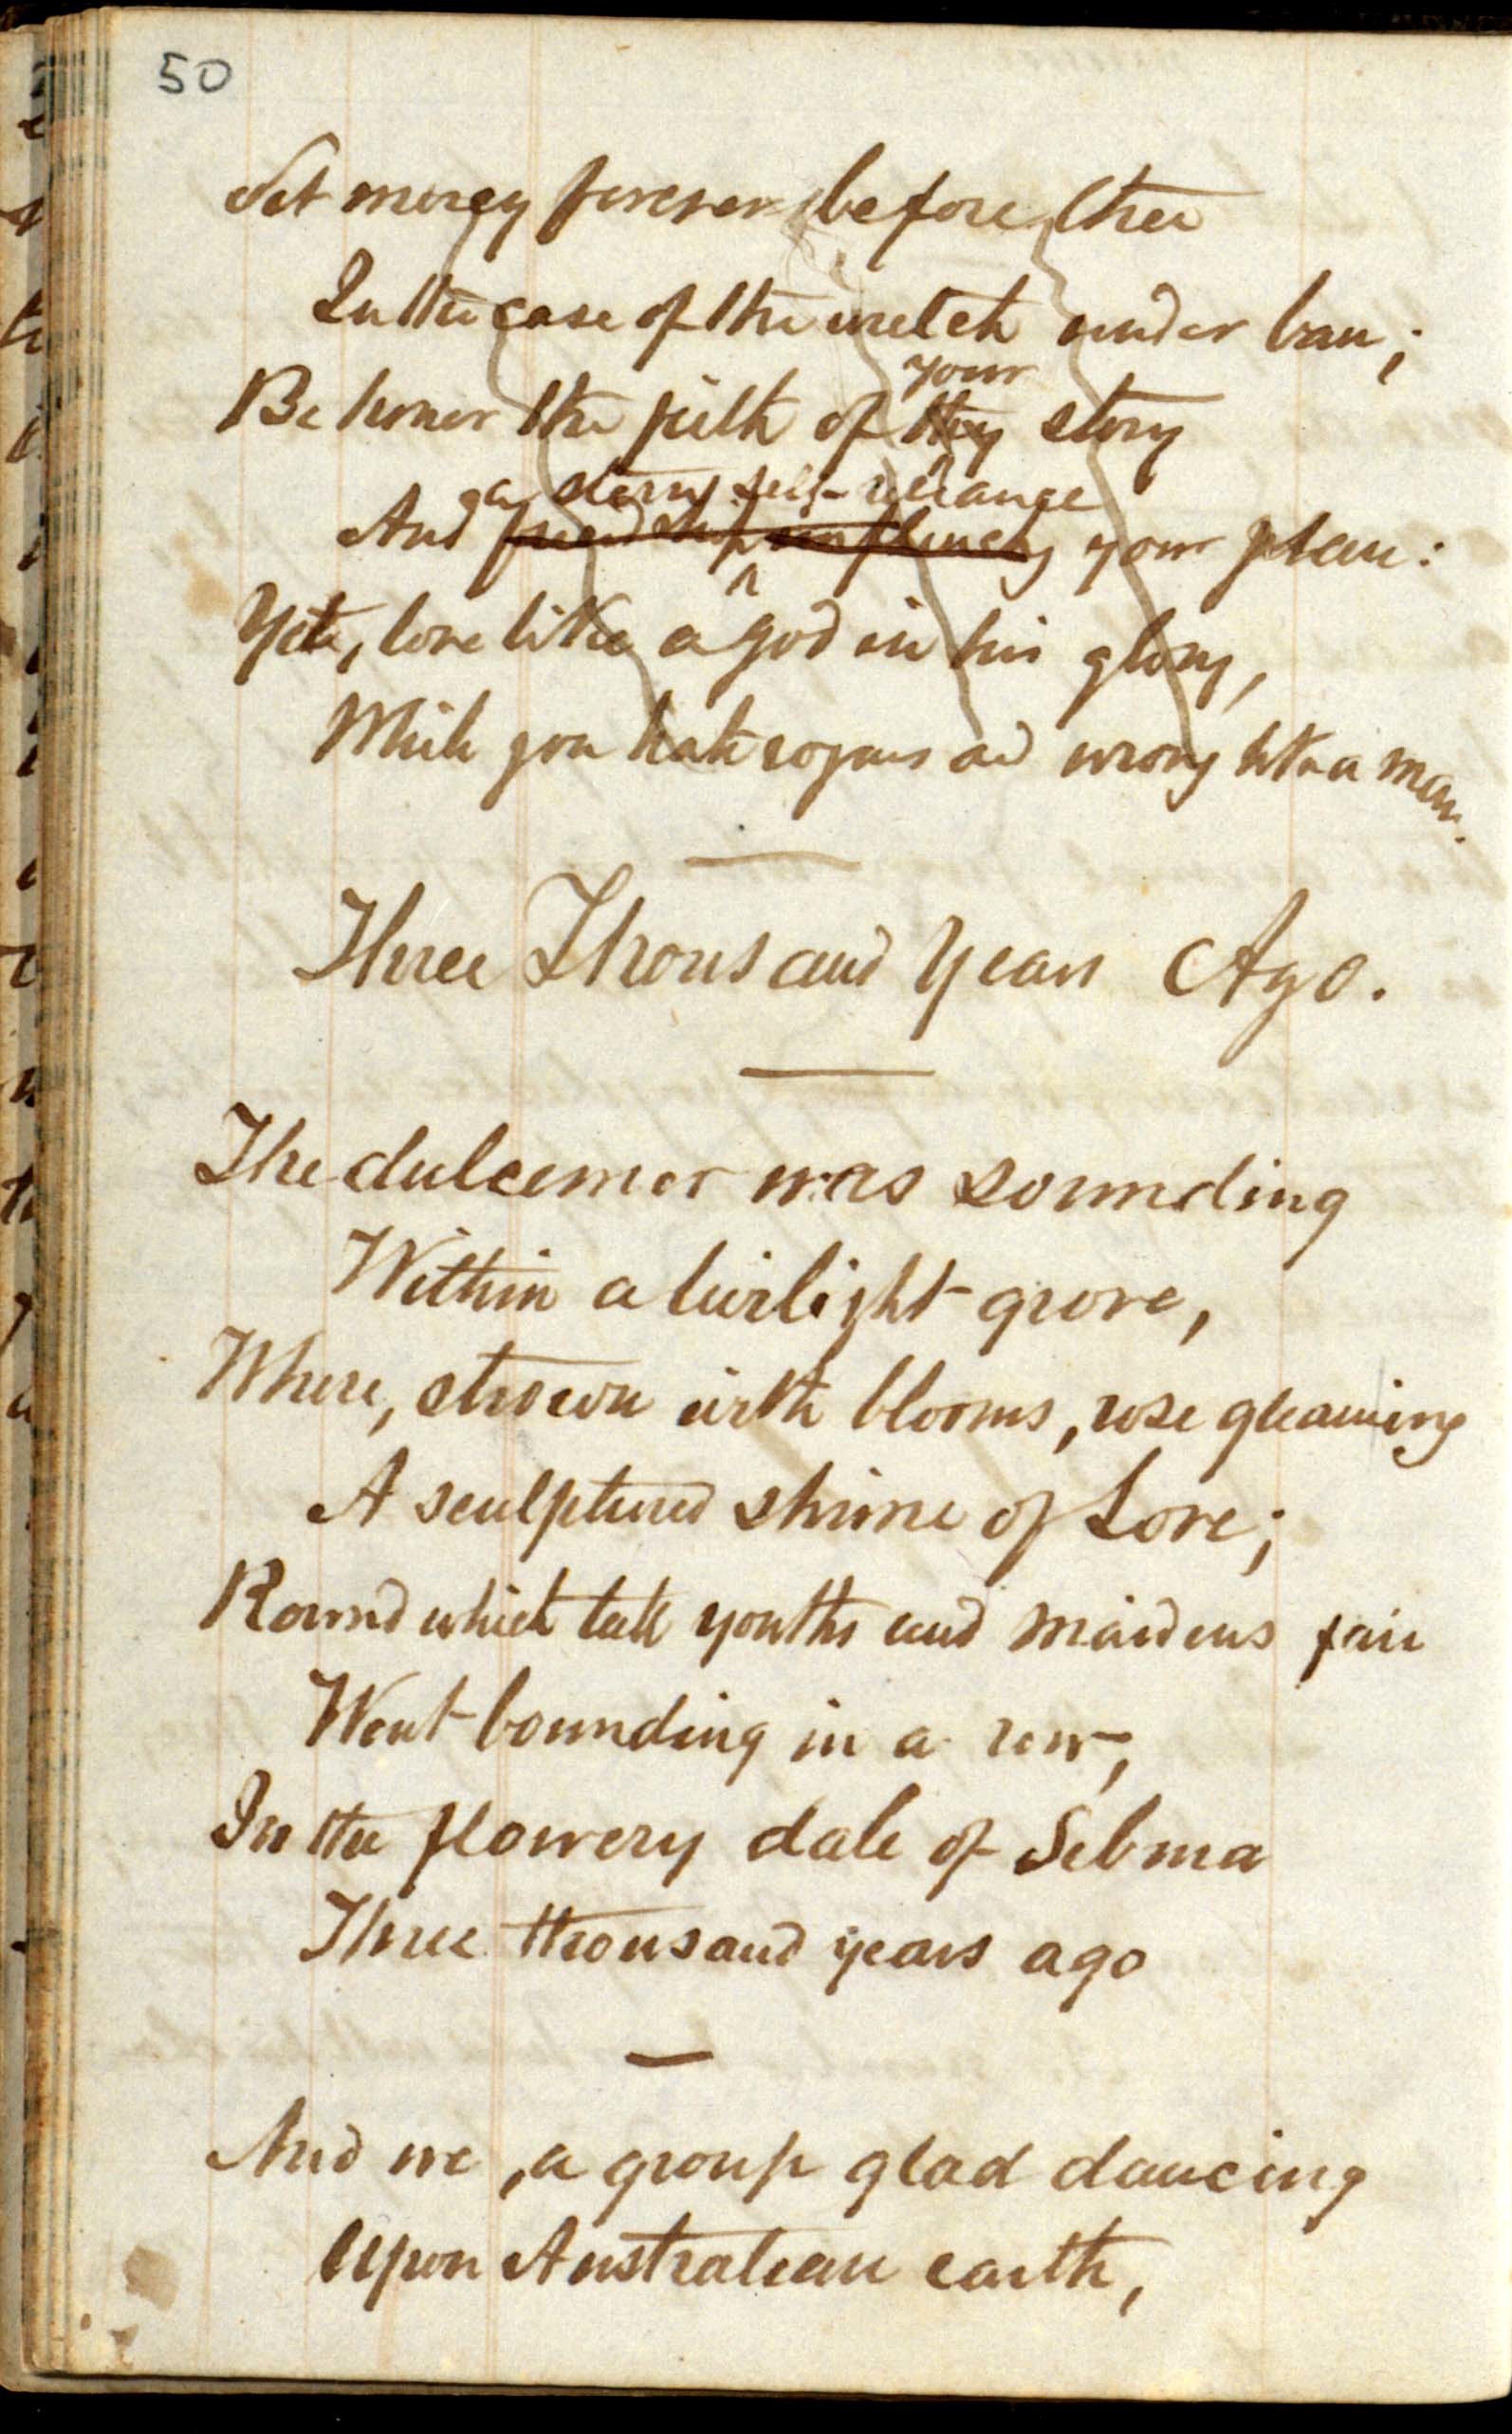 50
Set mercy forever before thee
In the case of the wretch under ban;
your
Be honor the pith of thy story
a stern self-reliance
And friendship influency your plan:
Yet, love like a god in his glory,
While you hate rogues and wrong like a man.
Three Thousand Years Ago.
The dulcemer was sounding
Within a twilight grove,
Where, strown with blooms, rose gleaming
A sculptured shrine of Love;
Round which tall youths and maidens fair
Went bounding in a row,
In the flowery dale of Sebma
Three thousand years ago
And we, a group glad dancing
Upon Australian earth,